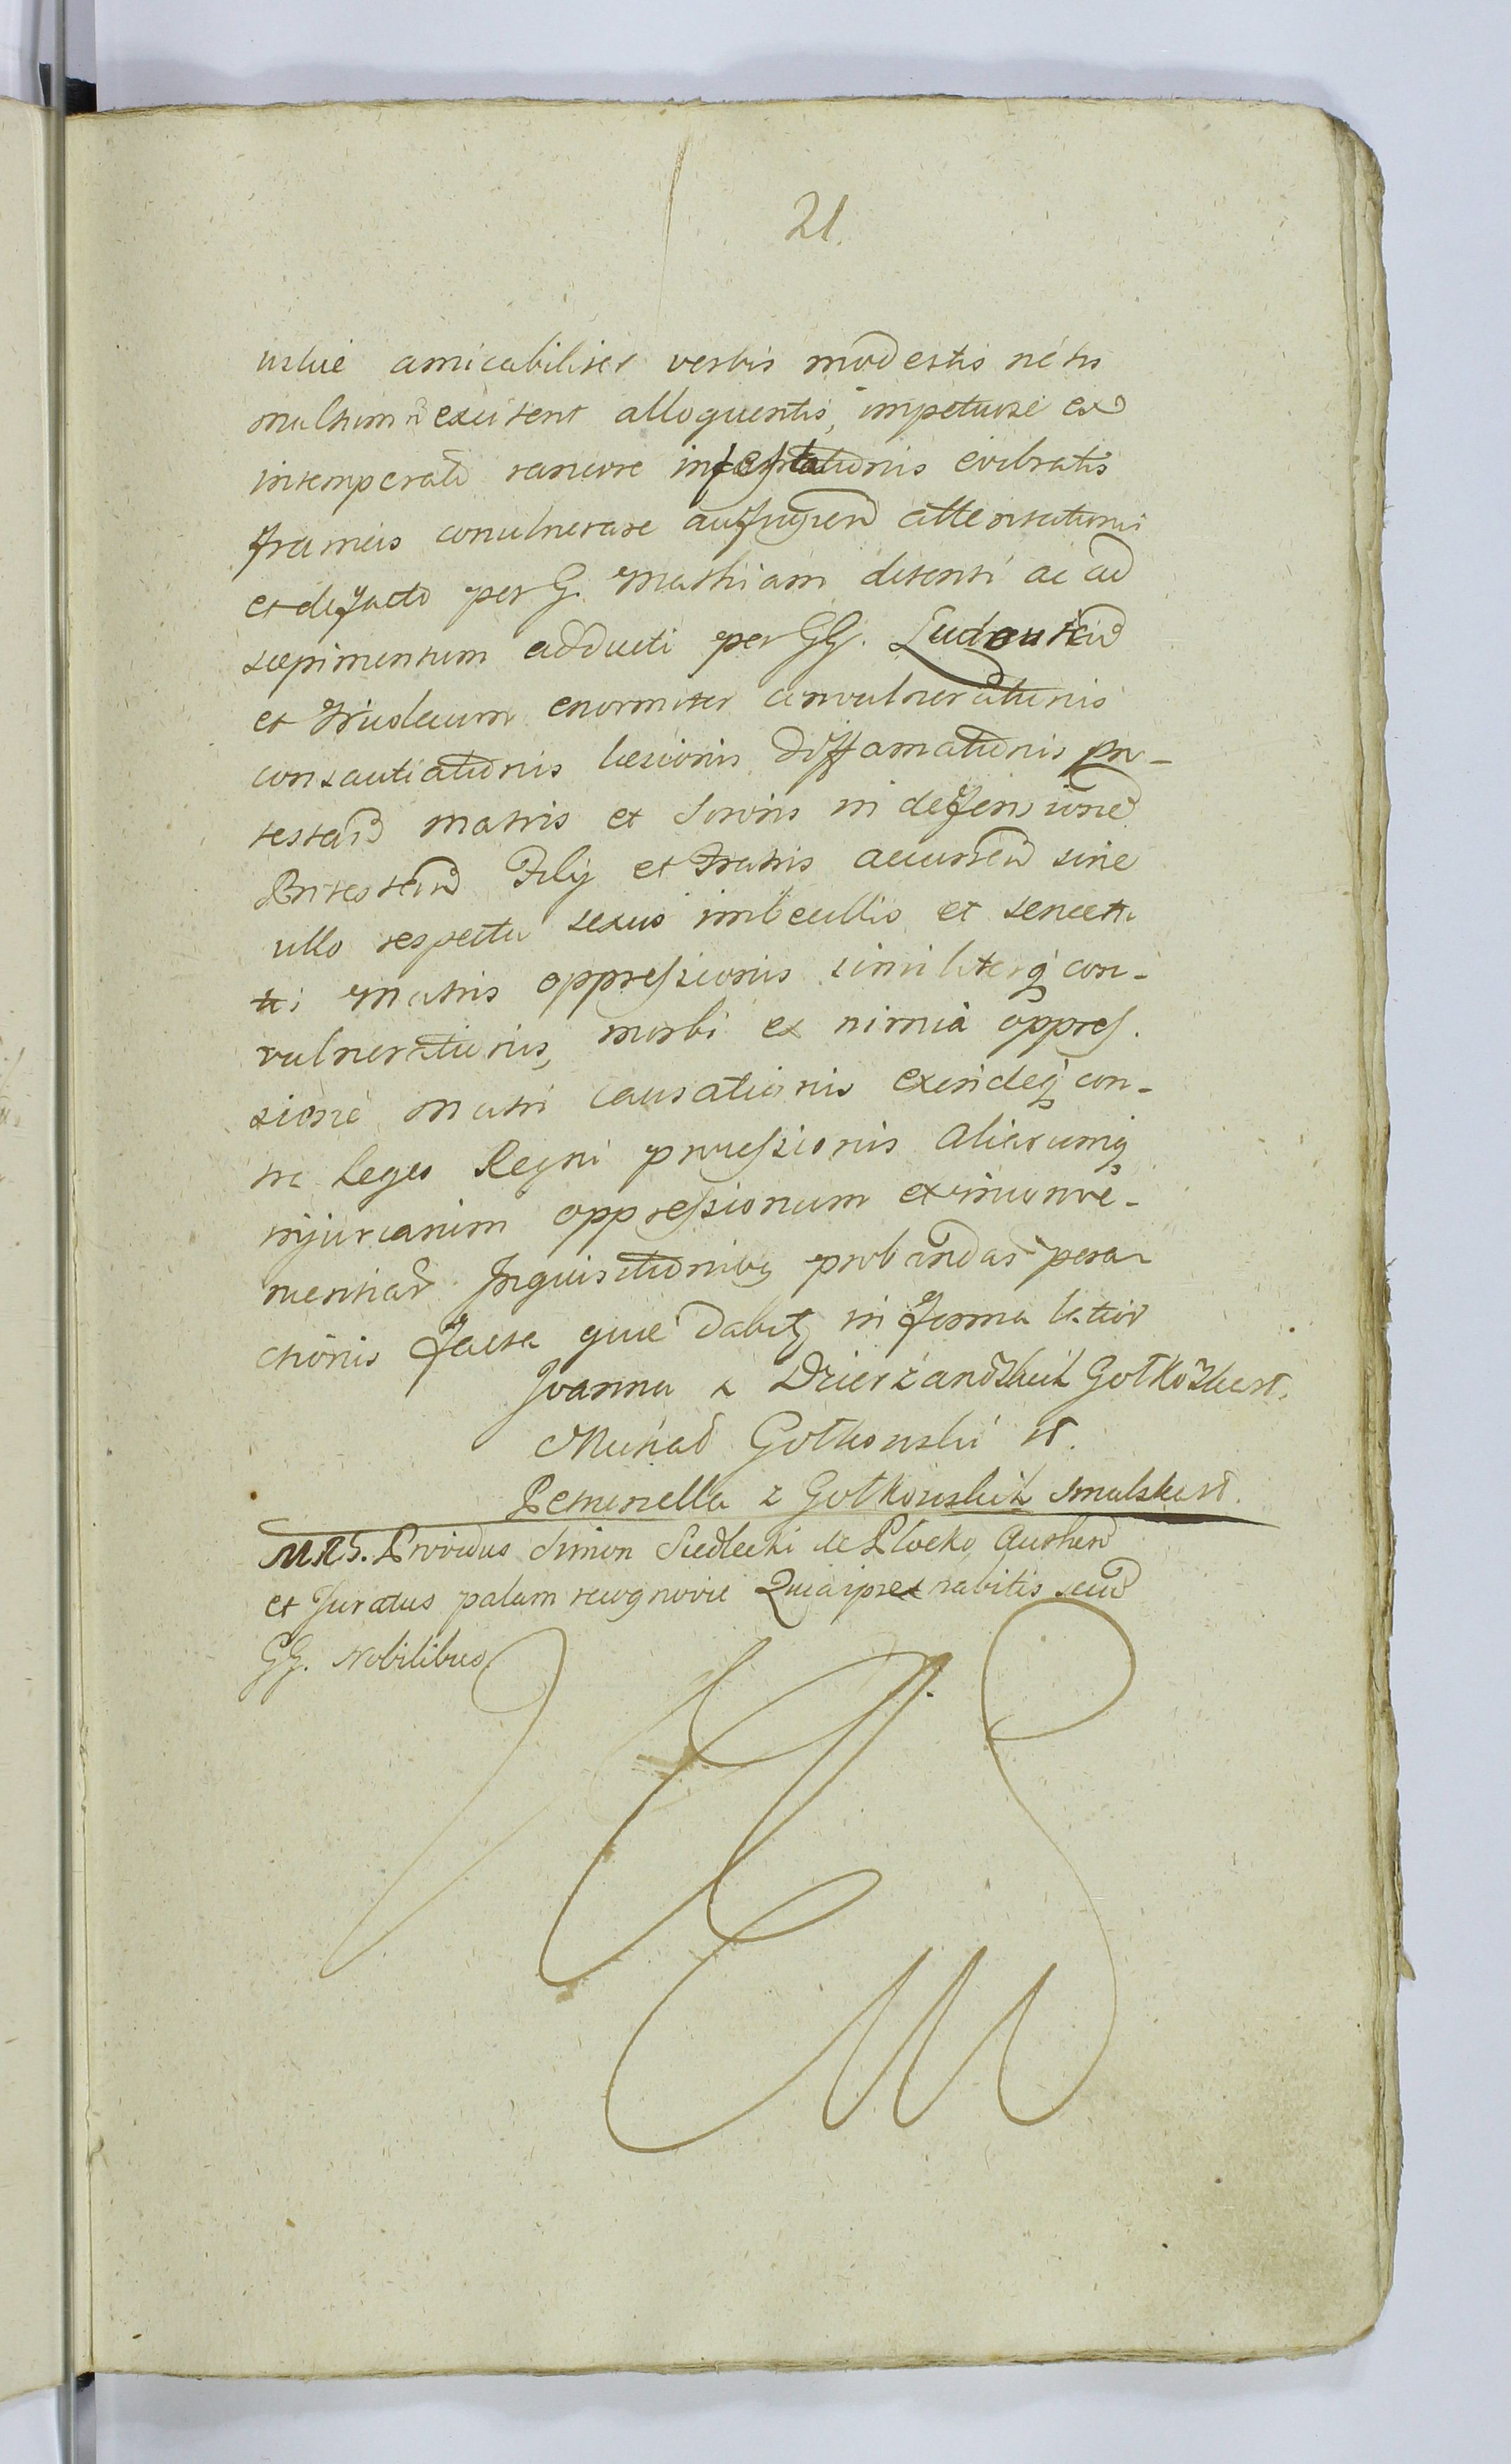 21.
amicabiliter verbis modestis
alloquentis, impetuose ex
intemperato rancore infestationis evibratis
frameis convulnerare aufugien attentationis
et defacto per G. Mathiam detenti ac ad
sepimentum adducti per GG. Ludovicu
et enormiter convulnerationis
consautiationis lesionis diffamationis pro-
testan matris et Sororis in defensione
Protestan Filij et Fratris accurren sine
ullo respectu sexus imbecillis et senectu
ti Matris oppressionis similiterq con-
vulnerationis, morbi ex nimia oppres.
sione Matri causationis exindeq con-
tra leges Regni processionis aliarumq
injuriarum oppressionum et inconve-
nientiar Inquisitionibq probandar pera-
ctionis Facta que dabit in forma latior
Joanna z Dzierżanowskich Gołkowska
Michał Gołkowski
Petronella z Gołkowskich Smulska
MRS. Providus Simon Siedlecki de Płocko Authen
et Juratus palam recognovit Quia ipse habitis secu
GG. Nobilibus